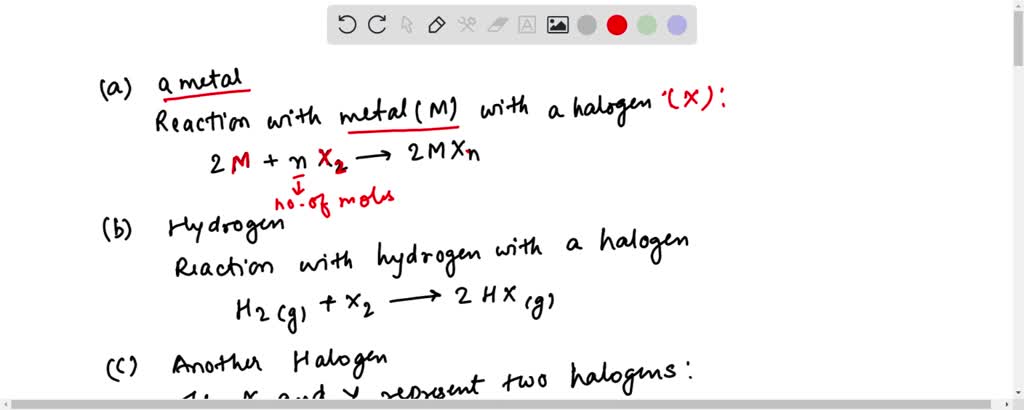 (a) a metal
Reaction with metal (M) with a halogen (X):
2 M + n X₂ → 2 M Xn
no. of moles
(b) Hydrogen
Reaction with hydrogen with a halogen
H₂(g) + X₂ → 2 HX(g)
(c) Another Halogen
X and Y represent two halogens: